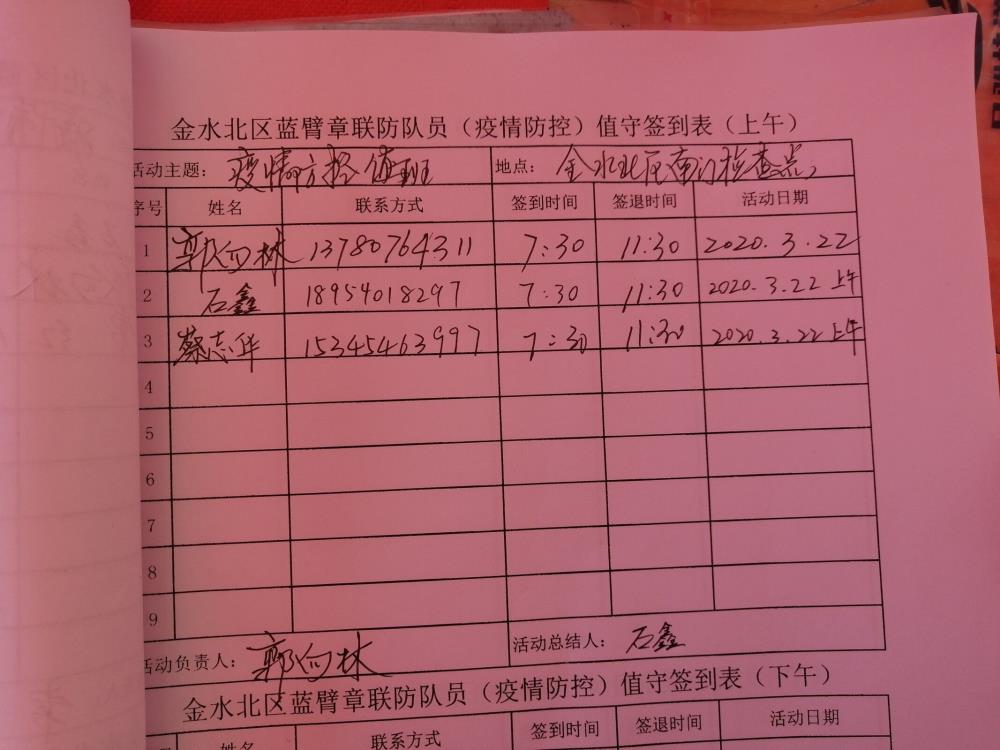 金水北区蓝臂章联防队员（疫情防控）值守签到表（上午）
活动主题： 疫情防控值班 地点： 金水北区南门检查点
序号 姓名 联系方式 签到时间 签退时间 活动日期
1 郭向林 13780764311 7:30 11:30 2020.3.22
2 石鑫 18954018297 7:30 11:30 2020.3.22 上午
3 蔡志华 15345463997 7:30 11:30 2020.3.22 上午
4
5
6
7
8
9
活动负责人： 郭向林 活动总结人： 石鑫
金水北区蓝臂章联防队员（疫情防控）值守签到表（下午）
姓名 联系方式 签到时间 签退时间 活动日期